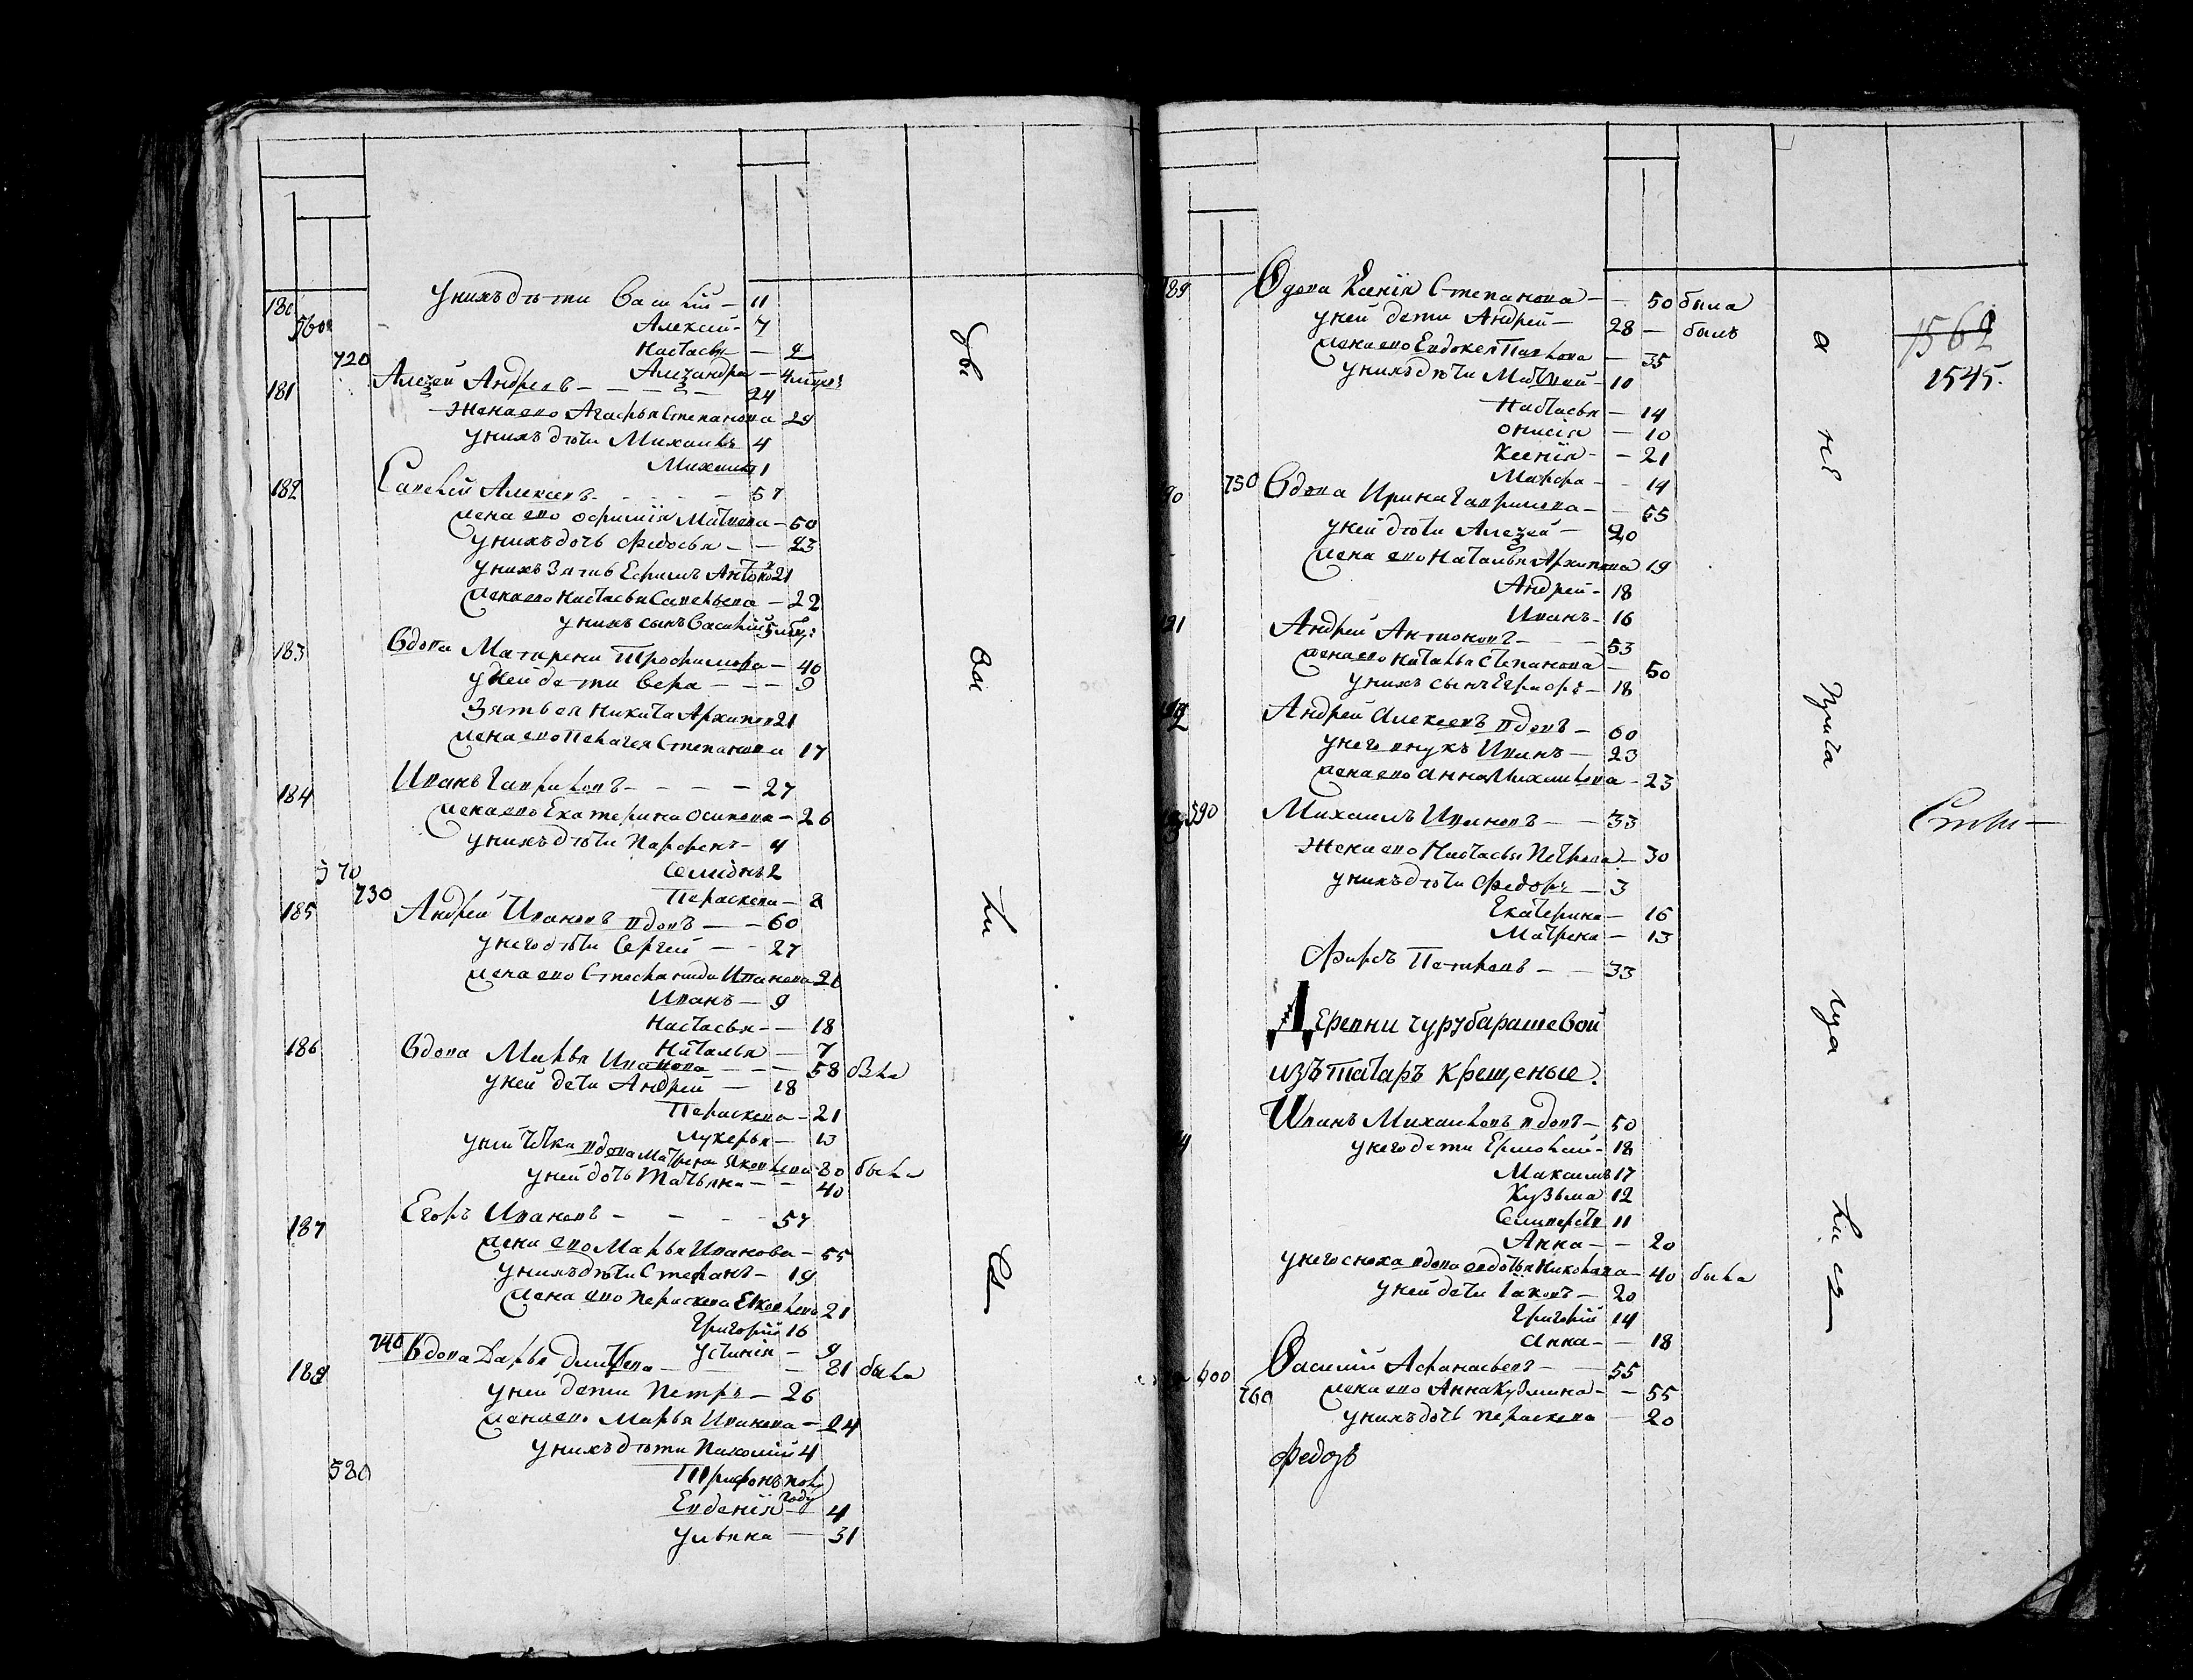 180 у нихъ дѣти Василий — 11
560 Алексий — 7
Настасья — 9
720 Алеѯандра — 4 мцовъ
181 Алеѯей Андреевъ — 24
Жена ево Агафья Степанова 29
у нихъ дѣти Михаилъ 4
Михаилъ 1
182 Савелий Алексеевъ — 57
жена ево Офимия Матвеева — 50
у нихъ дочь Федосья — 23
у нихъ зять Ефимъ Антоно 21
жена ево Настасья Савельева — 22
у нихъ сынъ Василий
183 Вдова Матрена Трофимова — 40
у ней дети Вера — 9
Зять ея Никита Архипов 21
жена ево Пелагея Степанова 17
184 Иванъ Гавриловъ — 27
жена ево Екатерина Осипова — 26
у нихъ дѣти Парфенъ — 4
570 Семионъ 2
730 Пераскева — 8
185 Андрей Ивановъ вдовъ — 60
у него дѣти Сергей — 27
жена ево Стефанида Иванова 26
Иванъ — 9
Настасья — 18
Наталья — 7
186 Вдова Марья Иванова — 58 была
у ней дети Андрей — 18
Пераскева — 21
Лукерья — 13
у ней тѣтка вдова Матрена Яковлева — 80 была
у ней дочь Татьяна — 40
187 Егоръ Ивановъ — 57
жена ево Марья Иванова — 55
у нихъ дѣти Стефанъ — 19
жена ево Пераскева Яковлева 21
Григорий 16
740 Устиния — 9
188 Вдова Дарья Дмитрева — 81 была
у ней дети Петръ — 26
жена ево Марья Иванова — 24
у нихъ дѣти Пахомий 4
580 Трифонъ пол
году
Евдения — 4
Ульяна — 31
189 Вдова Ксения Степанова — 50 была
у ней дети Андрей — 28 — былъ
жена ево Евдокея Павлова — 35
у нихъ дѣти Матвей — 10
Настасья — 14
Онисия — 10
Ксения — 21
Марфа — 14
90 750 Вдова Ирина Гаврилова — 55
у ней дѣти Алеѯей — 20
жена ево Наталья Архипова 19
Андрей — 18
Иванъ — 16
191 Андрей Антоновъ — 53
жена ево Наталья Степанова — 50
у нихъ сынъ Еграфъ — 18
192 Андрей Алексеевъ вдовъ — 60
у него внукъ Иванъ — 23
жена ево Анна Михаилова — 23
590 Михаилъ Ивановъ — 33
Жена ево Настасья Петрова — 30
у нихъ дѣти Федоръ — 3
Екатерина — 16
Матрена — 13
Фирсъ Петровъ — 33
Деревни Чурубарашевой
изъ татаръ крещеные.
Иванъ Михаиловъ вдовъ — 50
у него дети Ермолай — 18
Максимъ 17
Кузьма 12
Селиверстъ 11
Анна — 20
у него сноха вдова Авдотья Николаева — 40 была
у ней дети Иаковъ — 20
Григорий 14
Анна — 18
600 Василий Афанасьевъ — 55
760 жена ево Анна Кузмина — 55
у нихъ дочь Пераскева — 20
Федоръ
1562
1545.